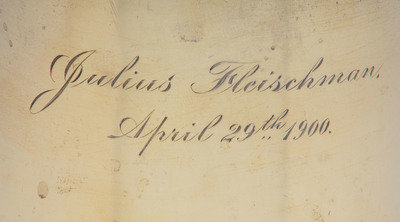 Julius Fleischman,
April 29th 1900.